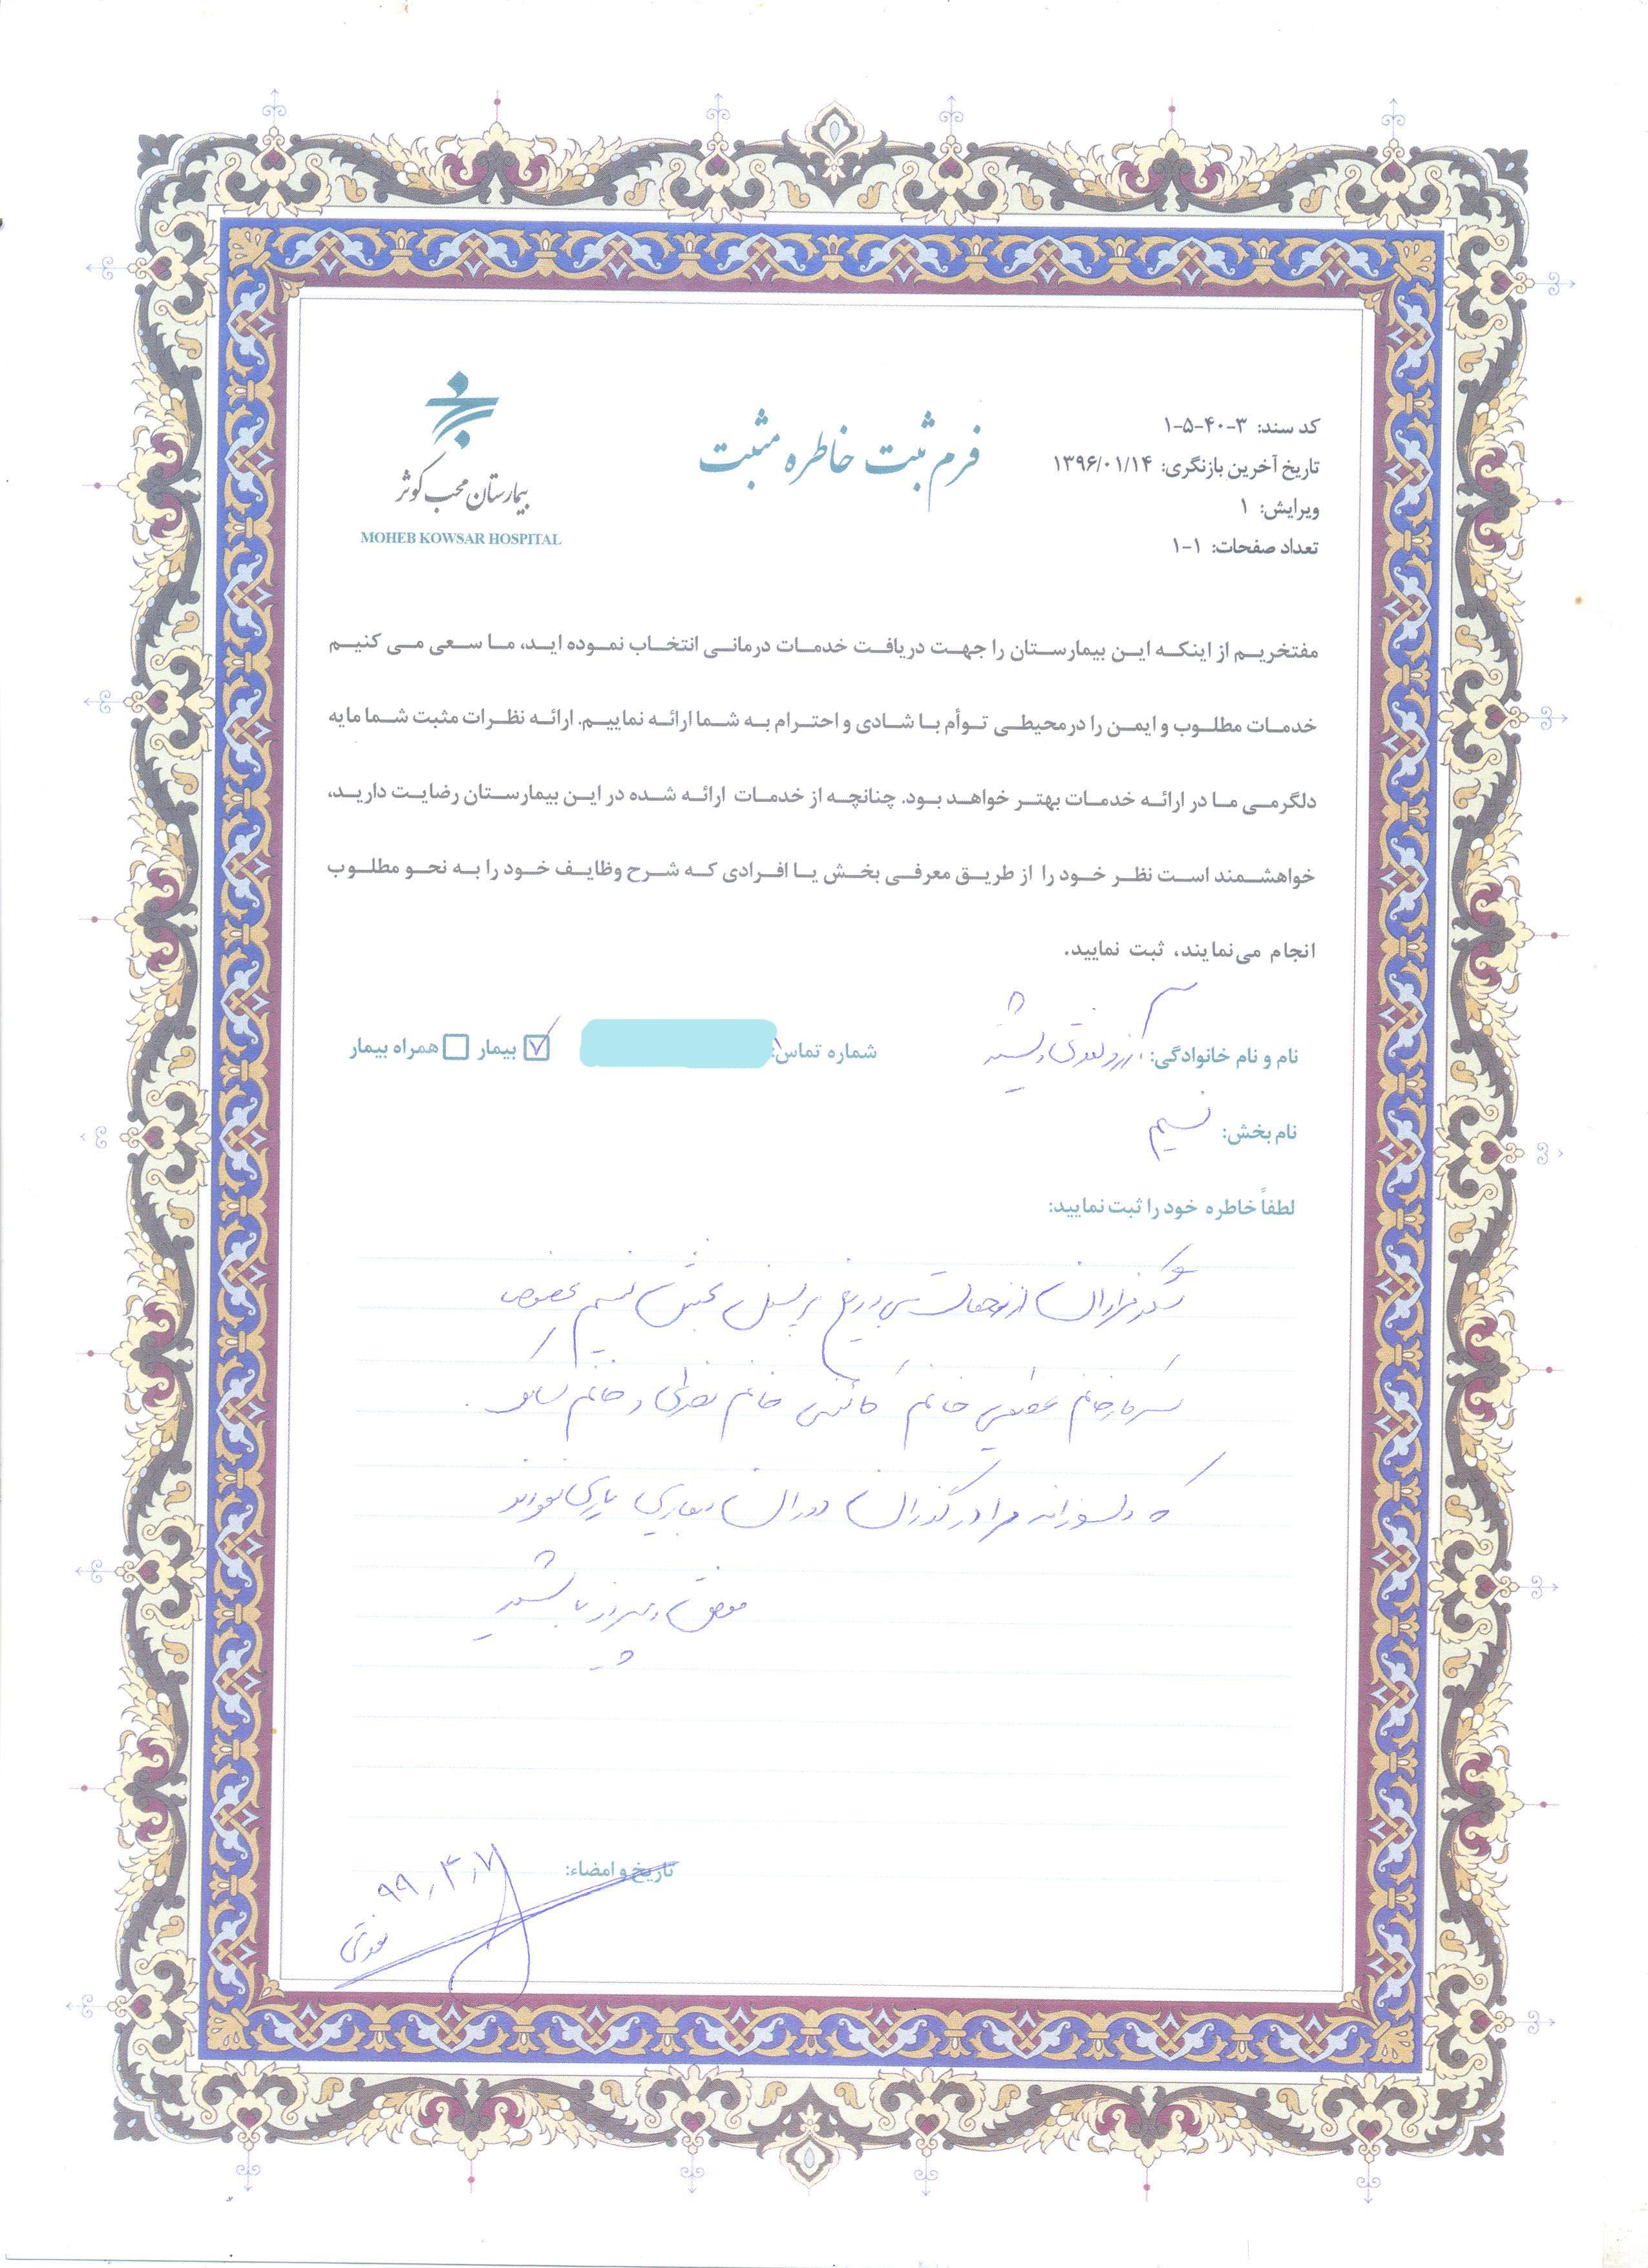 کد سند: ۳-۴۰-۵-۱
تاریخ آخرین بازنگری: ۱۳۹۶/۰۱/۱۴
ویرایش: ۱
تعداد صفحات: ۱-۱
فرم ثبت خاطره مثبت
بیمارستان محب کوثر
MOHEB KOWSAR HOSPITAL
مفتخریم از اینکه این بیمارستان را جهت دریافت خدمات درمانی انتخاب نموده اید، ما سعی می کنیم
خدمات مطلوب و ایمن را در محیطی توأم با شادی و احترام به شما ارائه نماییم. ارائه نظرات مثبت شما مایه
دلگرمی ما در ارائه خدمات بهتر خواهد بود. چنانچه از خدمات ارائه شده در این بیمارستان رضایت دارید،
خواهشمند است نظر خود را از طریق معرفی بخش یا افرادی که شرح وظایف خود را به نحو مطلوب
انجام می‌نمایند، ثبت نمایید.
نام و نام خانوادگی: شماره تماس: بیمار همراه بیمار
نام بخش: نسیم
لطفاً خاطره خود را ثبت نمایید:
تشکر فراوان از زحمات بی دریغ پرسنل بخش نسیم بخصوص
سرکار خانم خانم خانم و خانم
که دلسوزانه مرا در گذران دوران بیماری یاری نمودند
موفق و پیروز باشید
تاریخ و امضاء:
۹۹٫۴٫۷